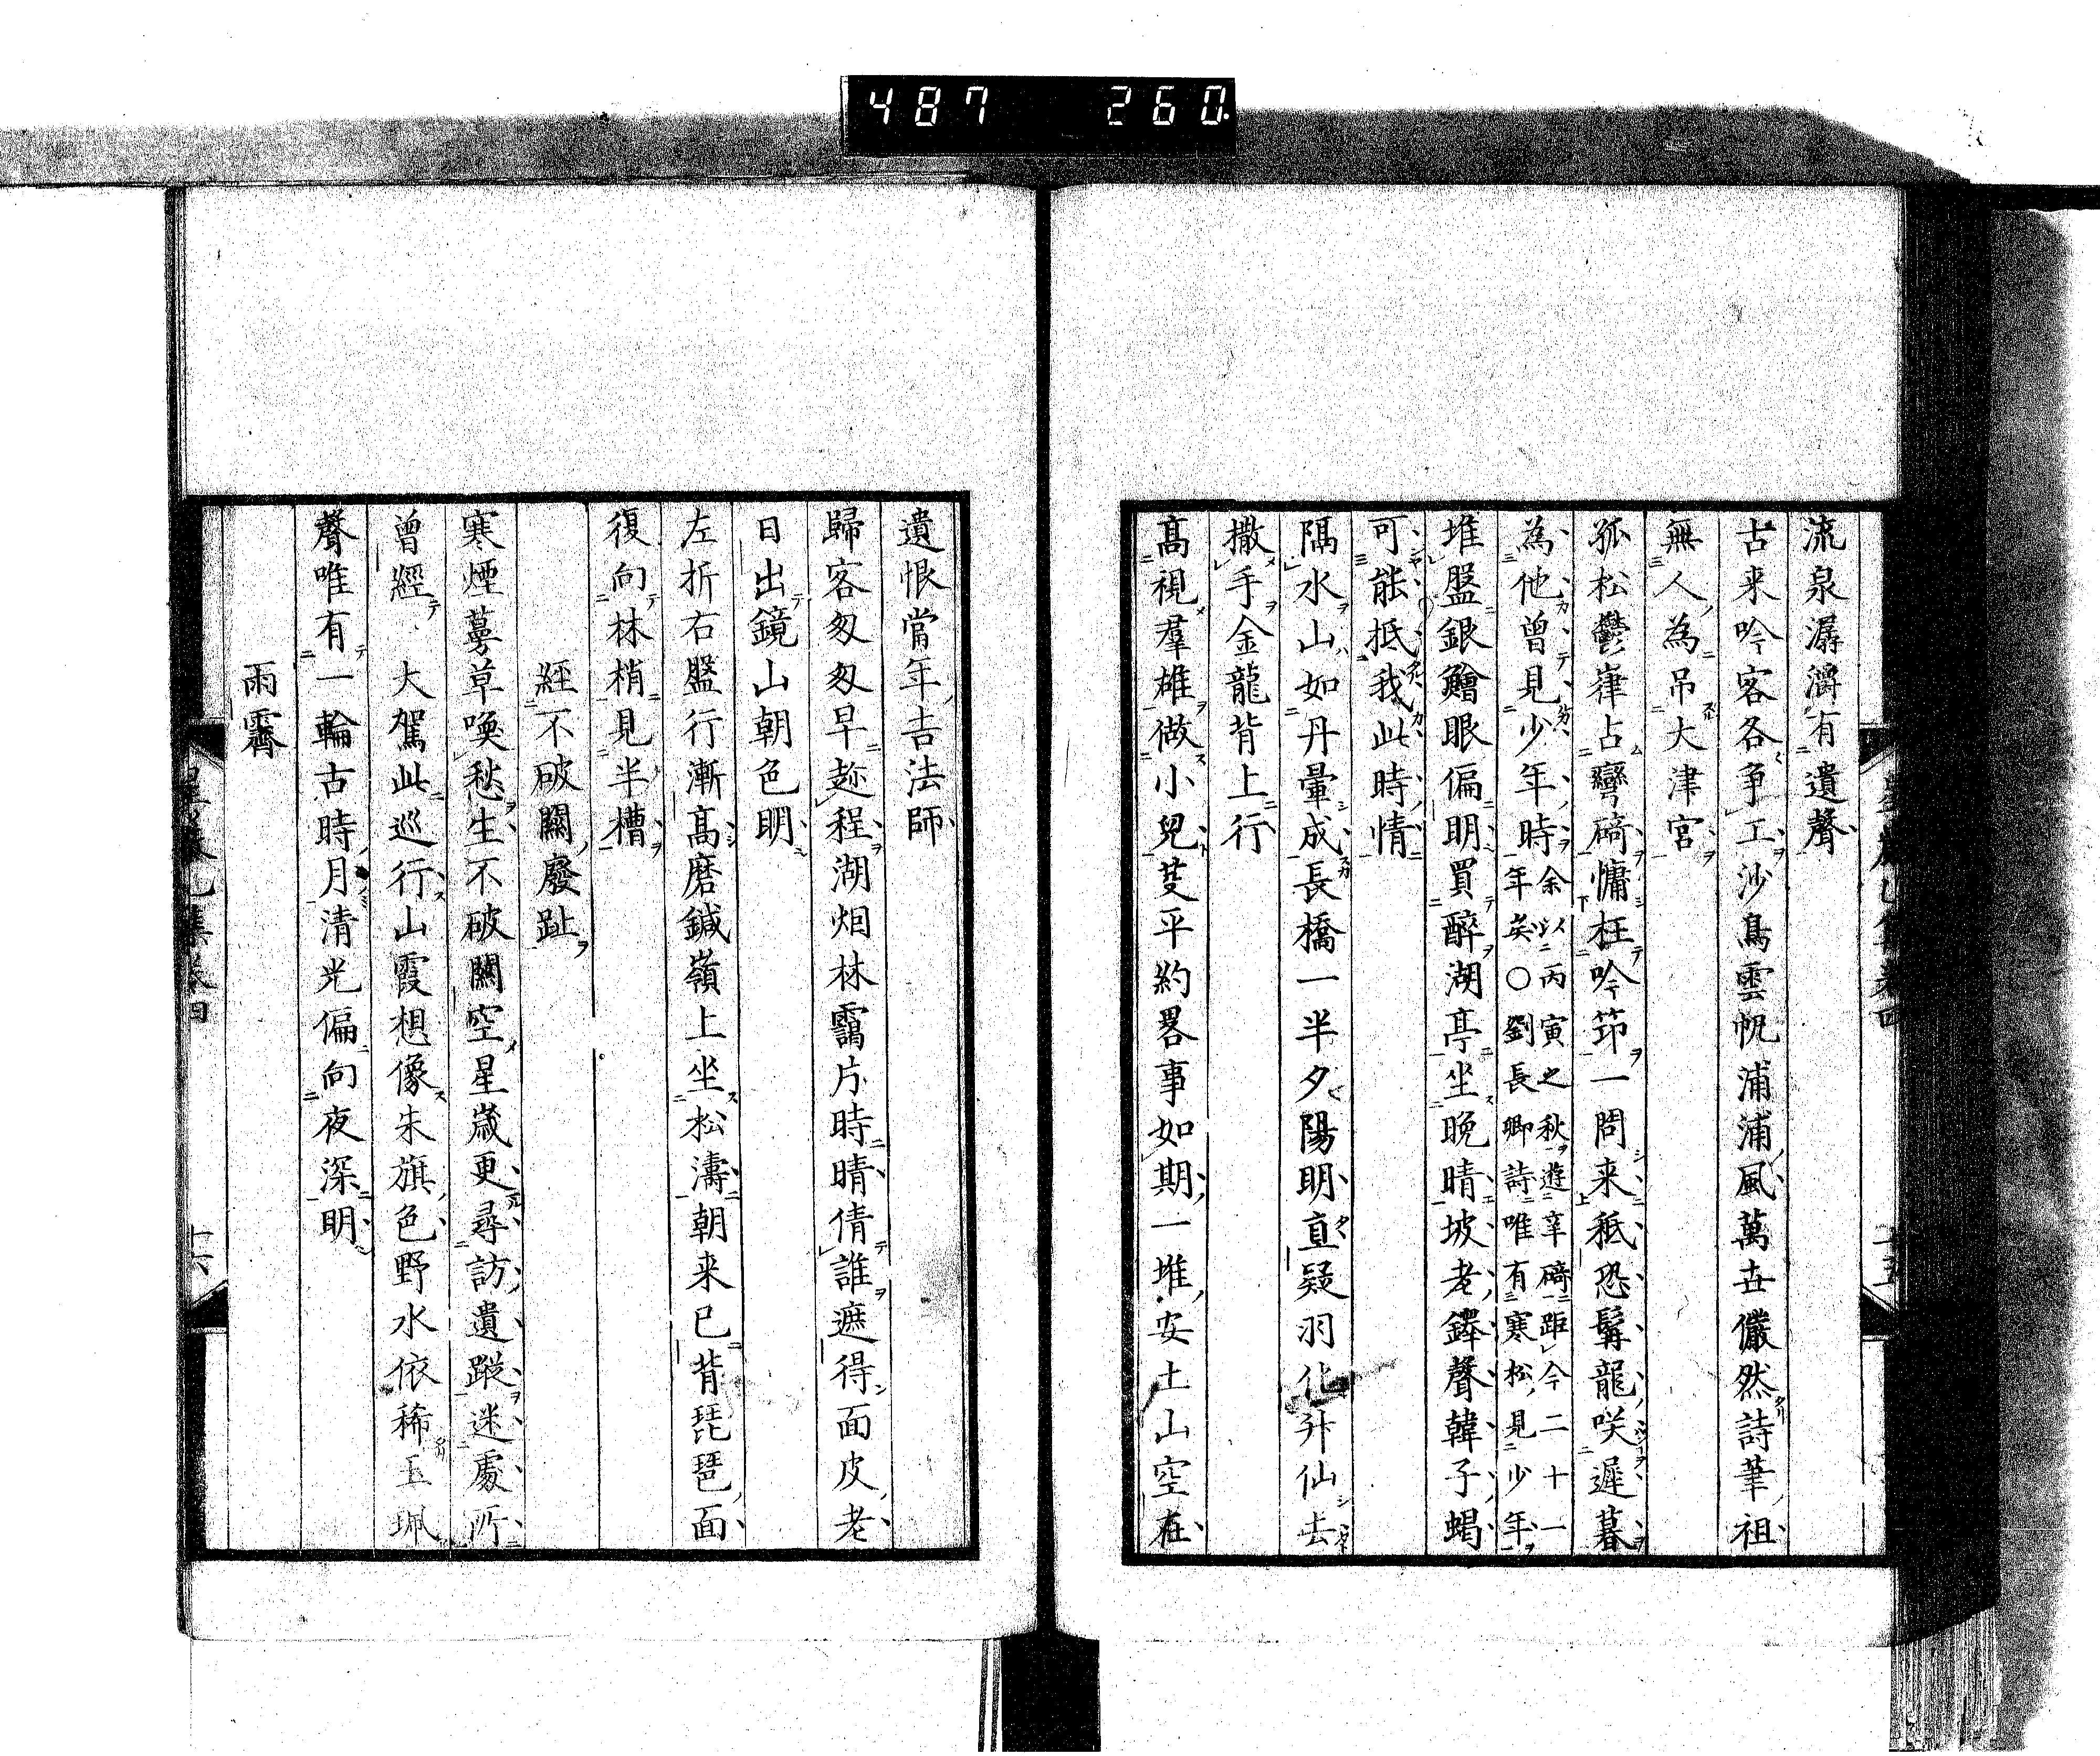 487 260
流泉潺湲有遺聲
古来吟客各爭工沙鳥雲帆浦浦風萬古儼然詩筆祖
無人為吊大津宮
孤松鬱嵂占彎碕慵枉吟笻一問来秪恐髯龍咲遲暮
為他曾見少年時余以丙寅之秋遊辛碕距今二十一
年矣○劉長卿詩唯有寒松見少年
堆盤銀鱠眼偏明買醉湖亭坐晚晴坡老鐸聲韓子蝎
可能抵我此時情
隔水山如丹暈成長橋一半夕陽明直疑羽化升仙去
撒手金龍背上行
髙視羣雄做小兒芟平約畧事如期一堆安土山空在
遺恨當年吉法師
歸客匆匆早趂程湖烟林靄片時晴倩誰遮得面皮老
日出鏡山朝色明
左折右盤行漸髙磨鍼嶺上坐松濤朝来已背琵琶面
復向林梢見半槽
經不破關廢趾
寒煙蔓草喚愁生不破關空星歲更尋訪遺蹤迷處所
曾經 大駕此巡行山霞想像朱旗色野水依稀玉珮
聲唯有一輪古時月清光偏向夜深明
雨霽